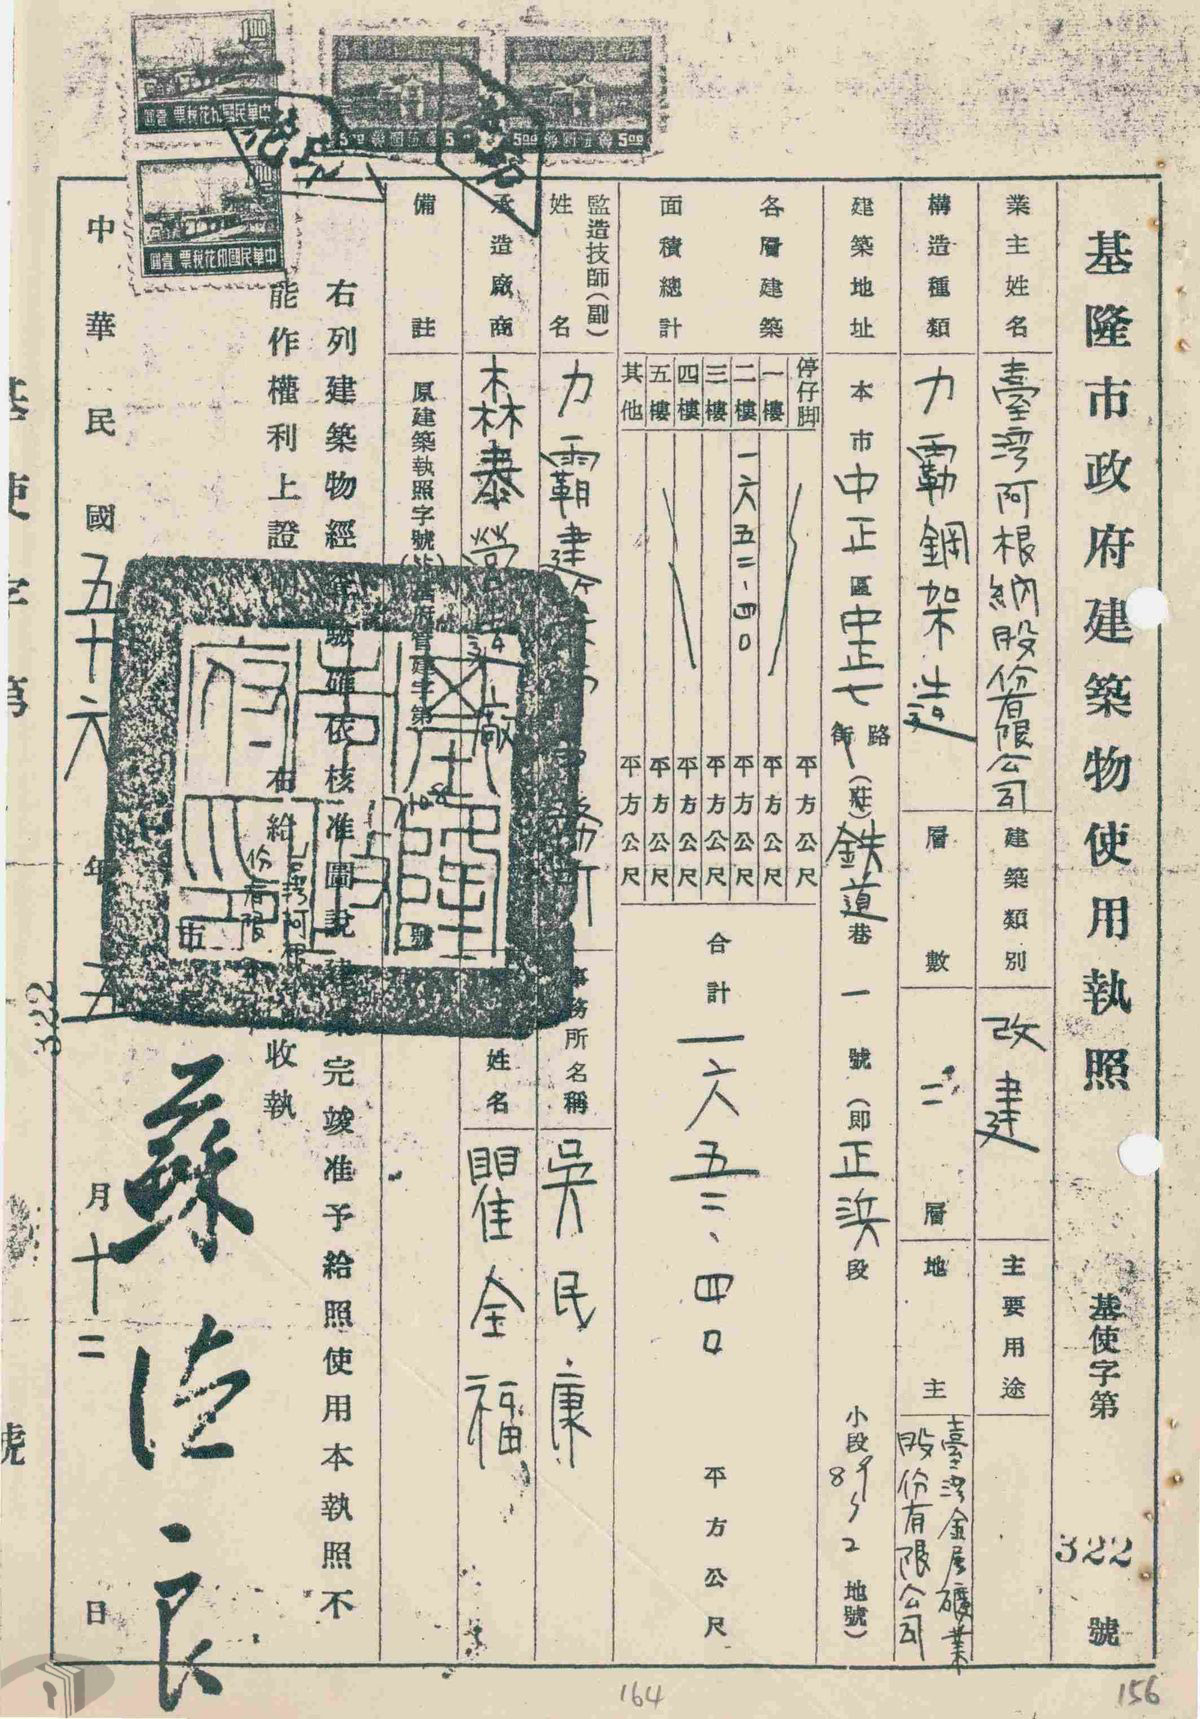 基隆市政府建築物使用執照
基使字第322號
業主姓名
臺灣阿根納股份有限公司
建築類別
改建
主要用途
構造種類
力霸鋼架造
層數
二層
地主
臺灣金屬礦業
股份有限公司
建築地址
本市中正區中正七路街(莊)鉄道巷一號(即正浜段小段
地號)
各層建築
面積總計
停仔脚 平方公尺
一樓 平方公尺
二樓 一六五二.四〇 平方公尺
三樓 平方公尺
四樓 平方公尺
五樓 平方公尺
其他 平方公尺
合計一六五二、四〇平方公尺
監造技師(副)
姓名
力霸建
事務所名稱
吳民康
承造廠商
森泰營造廠
姓名
瞿全福
備註
原建築執照字號
府管建字第108號
右列建築物經
驗確依核准圖說建築完竣准予給照使用本執照不
能作權利上證
右給
份有限公司
收執
市
蘇德良
中華民國五十六年五月十二日
基使字第
322
號
中華民國印花稅票
中華民國印花稅票
5.00
5.00
164
156